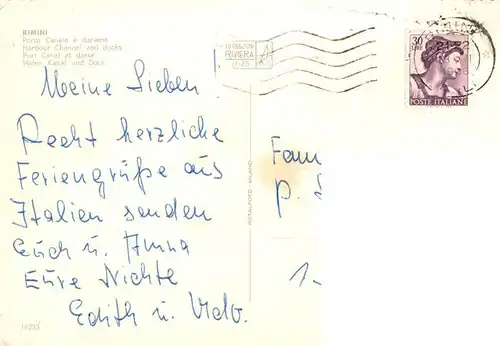 RIMINI
Porto Canale e darsena
Harbour Channel and docks
Port Canal et darse
Hafen Kanal und Dock
RIVIERA
30
LIRE
21-22
POSTE ITALIANE
Meine Lieben!
Recht herzliche
Feriengrüße aus
Italien senden
Euch u. Anna
Eure Nichte
Edith u. Udo.
Fam
P.
1-
ROTALFOTO - MILANO